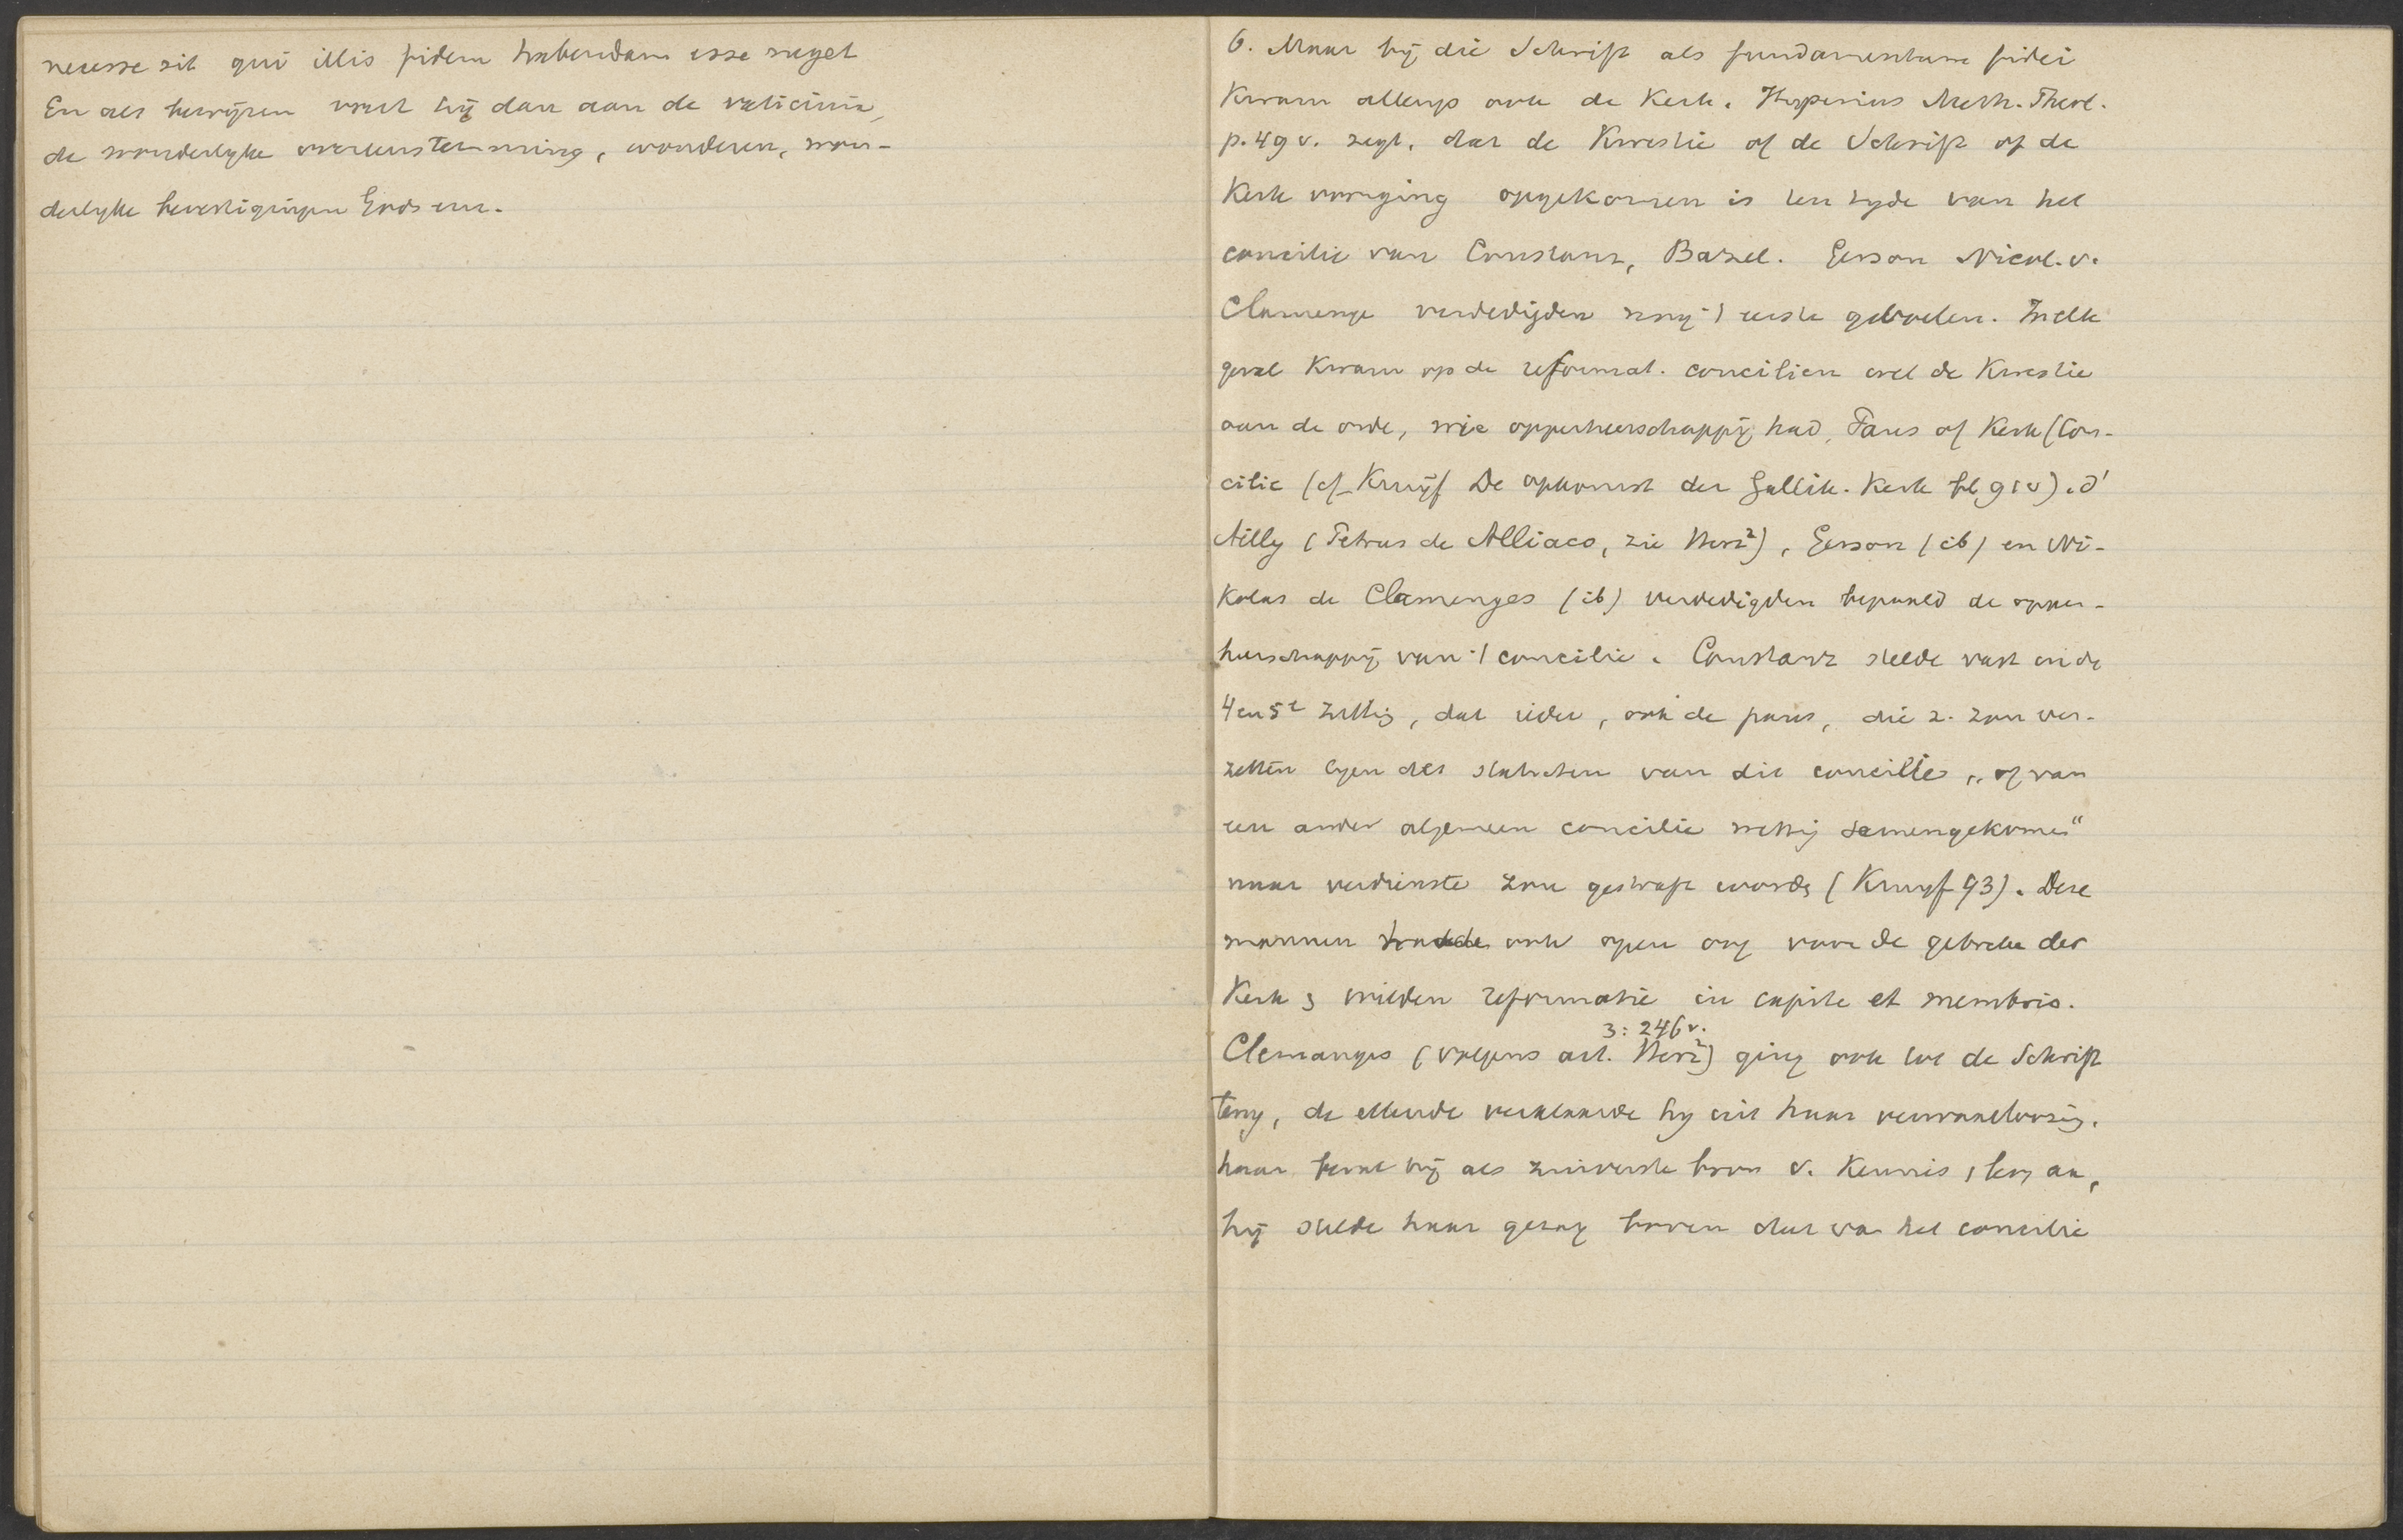 necesse sit qui illis fidem habendam esse neget
En als bewijzen voert hij dan aan de vaticinia,
de wonderlyke overeenstemming, wonderen, won-
derlyke bevestigingen Gods enz.
6. Maar bij die Schrift als fundamentum fidei
Kwam allengs ook de Kerk. Hyperius Meth. Theol.
p. 49 v. zegt, dat de Kwestie of de Schrift of de
Kerk voorging opgekomen is ten tyde van het
concilie van Constanz, Bazel. Gerson Nicol. v.
Clamenge verdedigden nog 't eerste gevoelen. In elk
geval Kwam op de reformat. concilien wel de Kwestie
aan de orde, wie opperheerschappij had, Paus of Kerk (Con-
cilie (cf. Kruijf De opkomst der Gallik. Kerk bl. 91 v). d'
Ailly (Petrus de Alliaco, zie Herz²), Gerson (ib) en Ni-
kolas de Clamenges (ib) verdedigden bepaald de opper-
heerschappij van 't concilie. Constanz stelde vast in de
4 en 5e zittg, dat ieder, ook de paus, die z. zou ver-
zetten tegen des statuten van dit concilie „of van
een ander algemeen concilie wettig samengekomen“
naar verdienste zou gestraft words (Kruyf 93). Deze
mannen hadde ook open oog voor de gebreken der
Kerk & wilden reformatie in capite et membris.
3: 246 v.
Clemanges (volgens art. Herz²) ging ook tot de Schrift
terug, de ellende verklaarde hy uit haar verwaarloozing.
haar beval hij als zuiverste bron v. Kennis &
hij stelde haar gezag boven dat van het concilie